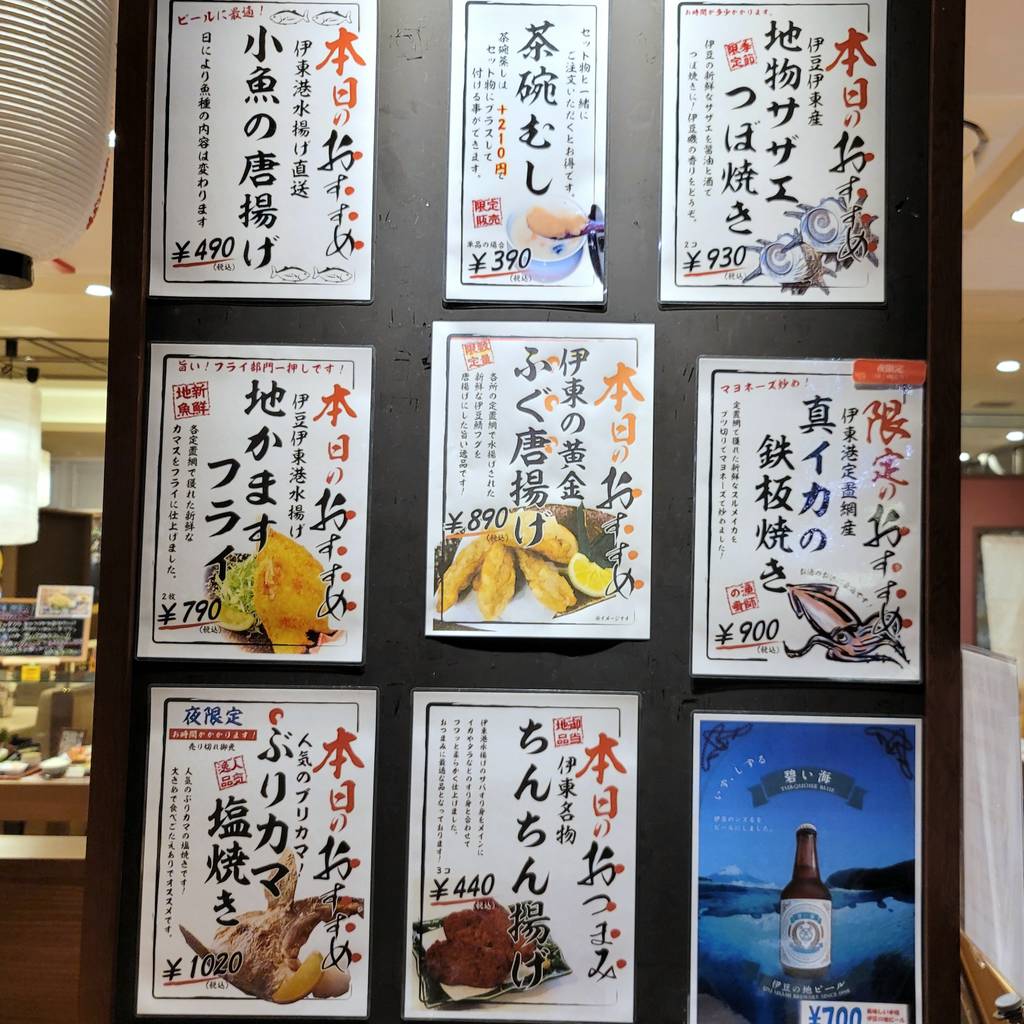 ビールに最適!
本日のおすすめ
伊東港水揚げ直送
小魚の唐揚げ
日により魚種の内容は変わります
¥490
(税込)
セット物と一緒に
ご注文いただくとお得です。
茶碗むし
茶碗蒸しは、+210円で
セット物にプラスして
付ける事ができます。
限定
販売
単品の場合
¥390
(税込)
お時間が多少かかります。
本日のおすすめ
伊豆伊東産
地物サザエ
つぼ焼き
季節
限定
伊豆の新鮮なサザエを醤油と酒で
つぼ焼きに!伊豆磯の香りをどうぞ。
2コ
¥930
(税込)
旨い!フライ部門一押しです!
本日のおすすめ
伊豆伊東港水揚げ
地かます
フライ
新鮮
地魚
各定置網で獲れた新鮮な
カマスをフライに仕上げました。
2枚
¥790
(税込)
本日のおすすめ
伊東の黄金
ふぐ唐揚げ
数量
限定
各所の定置網で水揚げされた
新鮮な伊豆鯖フグを
唐揚げにした旨い逸品です!
¥890
(税込)
※イメージです
夜限定
マヨネーズ炒め!
限定のおすすめ
伊東港定置網産
真イカの
鉄板焼き
定置網で獲れた新鮮なスルメイカを
ブツ切りでマヨネーズで炒めました!
漁師
の肴
¥900
(税込)
夜限定
お時間がかかります!
売り切れ御免
本日のおすすめ
人気のブリカマ!
ぶりカマ
塩焼き
人気
逸品
人気のぶりカマの塩焼きです!
大きめで食べごたえありでオススメです。
¥1020
(税込)
本日のおつまみ
伊東名物
ちんちん揚げ
御当
地品
伊東港水揚げのサバすり身をメインに
イカやタラなどのすり身と合わせて
フワッと柔らかく仕上げました。
おつまみに最適な品となっております!
3コ
¥440
(税込)
碧い海
TURQUOISE BLUE
伊豆のシズルを
ビールにしました。
伊豆の地ビール
¥700